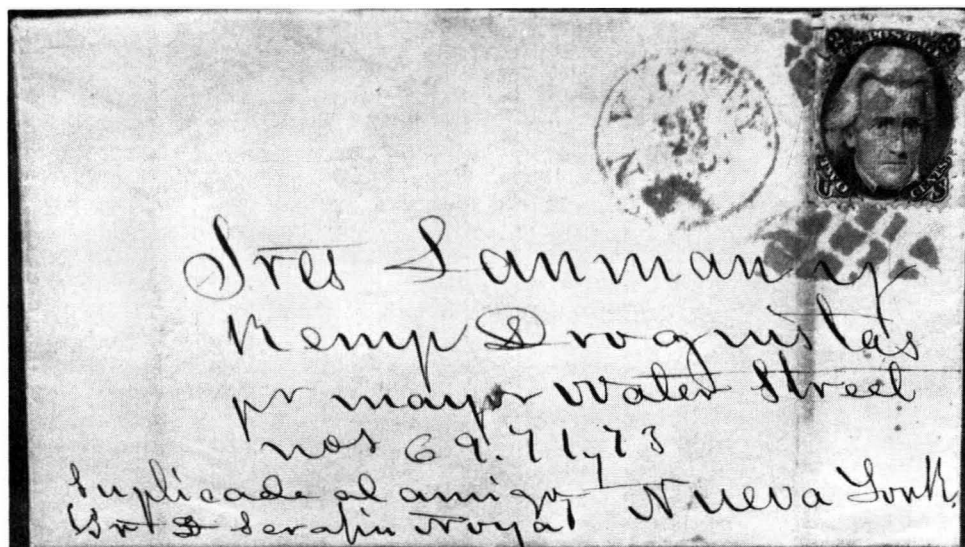 U.S. POSTAGE
TWO CENTS
N.Y. CITY
Sres Lanman y
Kemp Droguistas
pr mayor Water Street
nos 69. 71 y 73
Nueva York
Suplicada al amigo
Sr D Serafin Noya